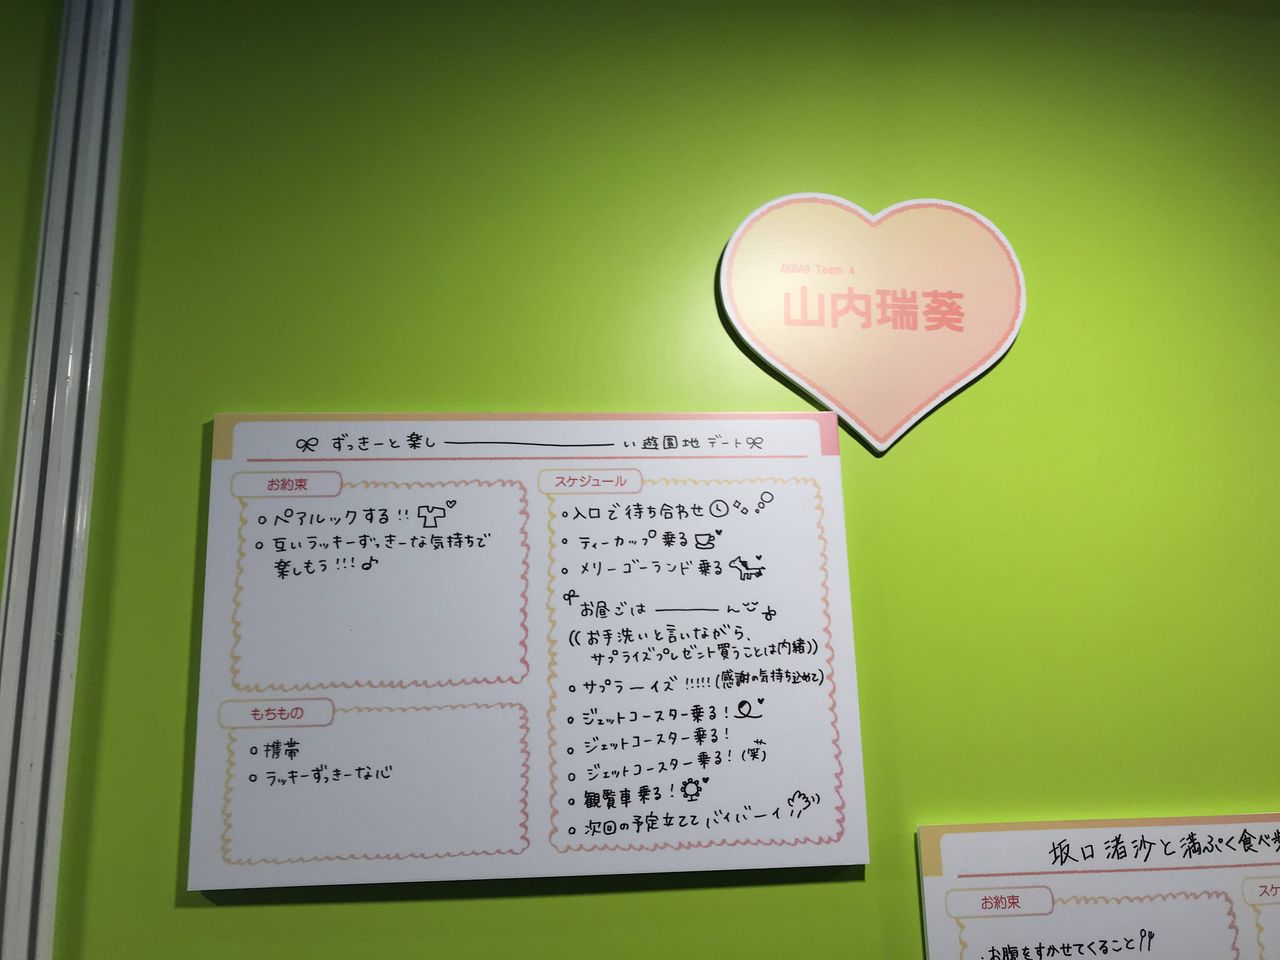 AKB48 Team 4
山内瑞葵
ずっきーと楽し――――い遊園地デート
お約束
○ペアルックする!!
○互いラッキーずっきーな気持ちで
楽しもう!!!♪
もちもの
○携帯
○ラッキーずっきーな心
スケジュール
○入口で待ち合わせ
○ティーカップ乗る
○メリーゴーランド乗る
お昼ごは――――ん
((お手洗いと言いながら、
サプライズプレゼント買うことは内緒))
○サプラーイズ!!!!!(感謝の気持ち込めて)
○ジェットコースター乗る!
○ジェットコースター乗る!
○ジェットコースター乗る!(笑)
○観覧車乗る!
○次回の予定立ててバイバーイ!!
坂口渚沙と満ぷく食べ歩
お約束
スケ
お腹をすかせてくること